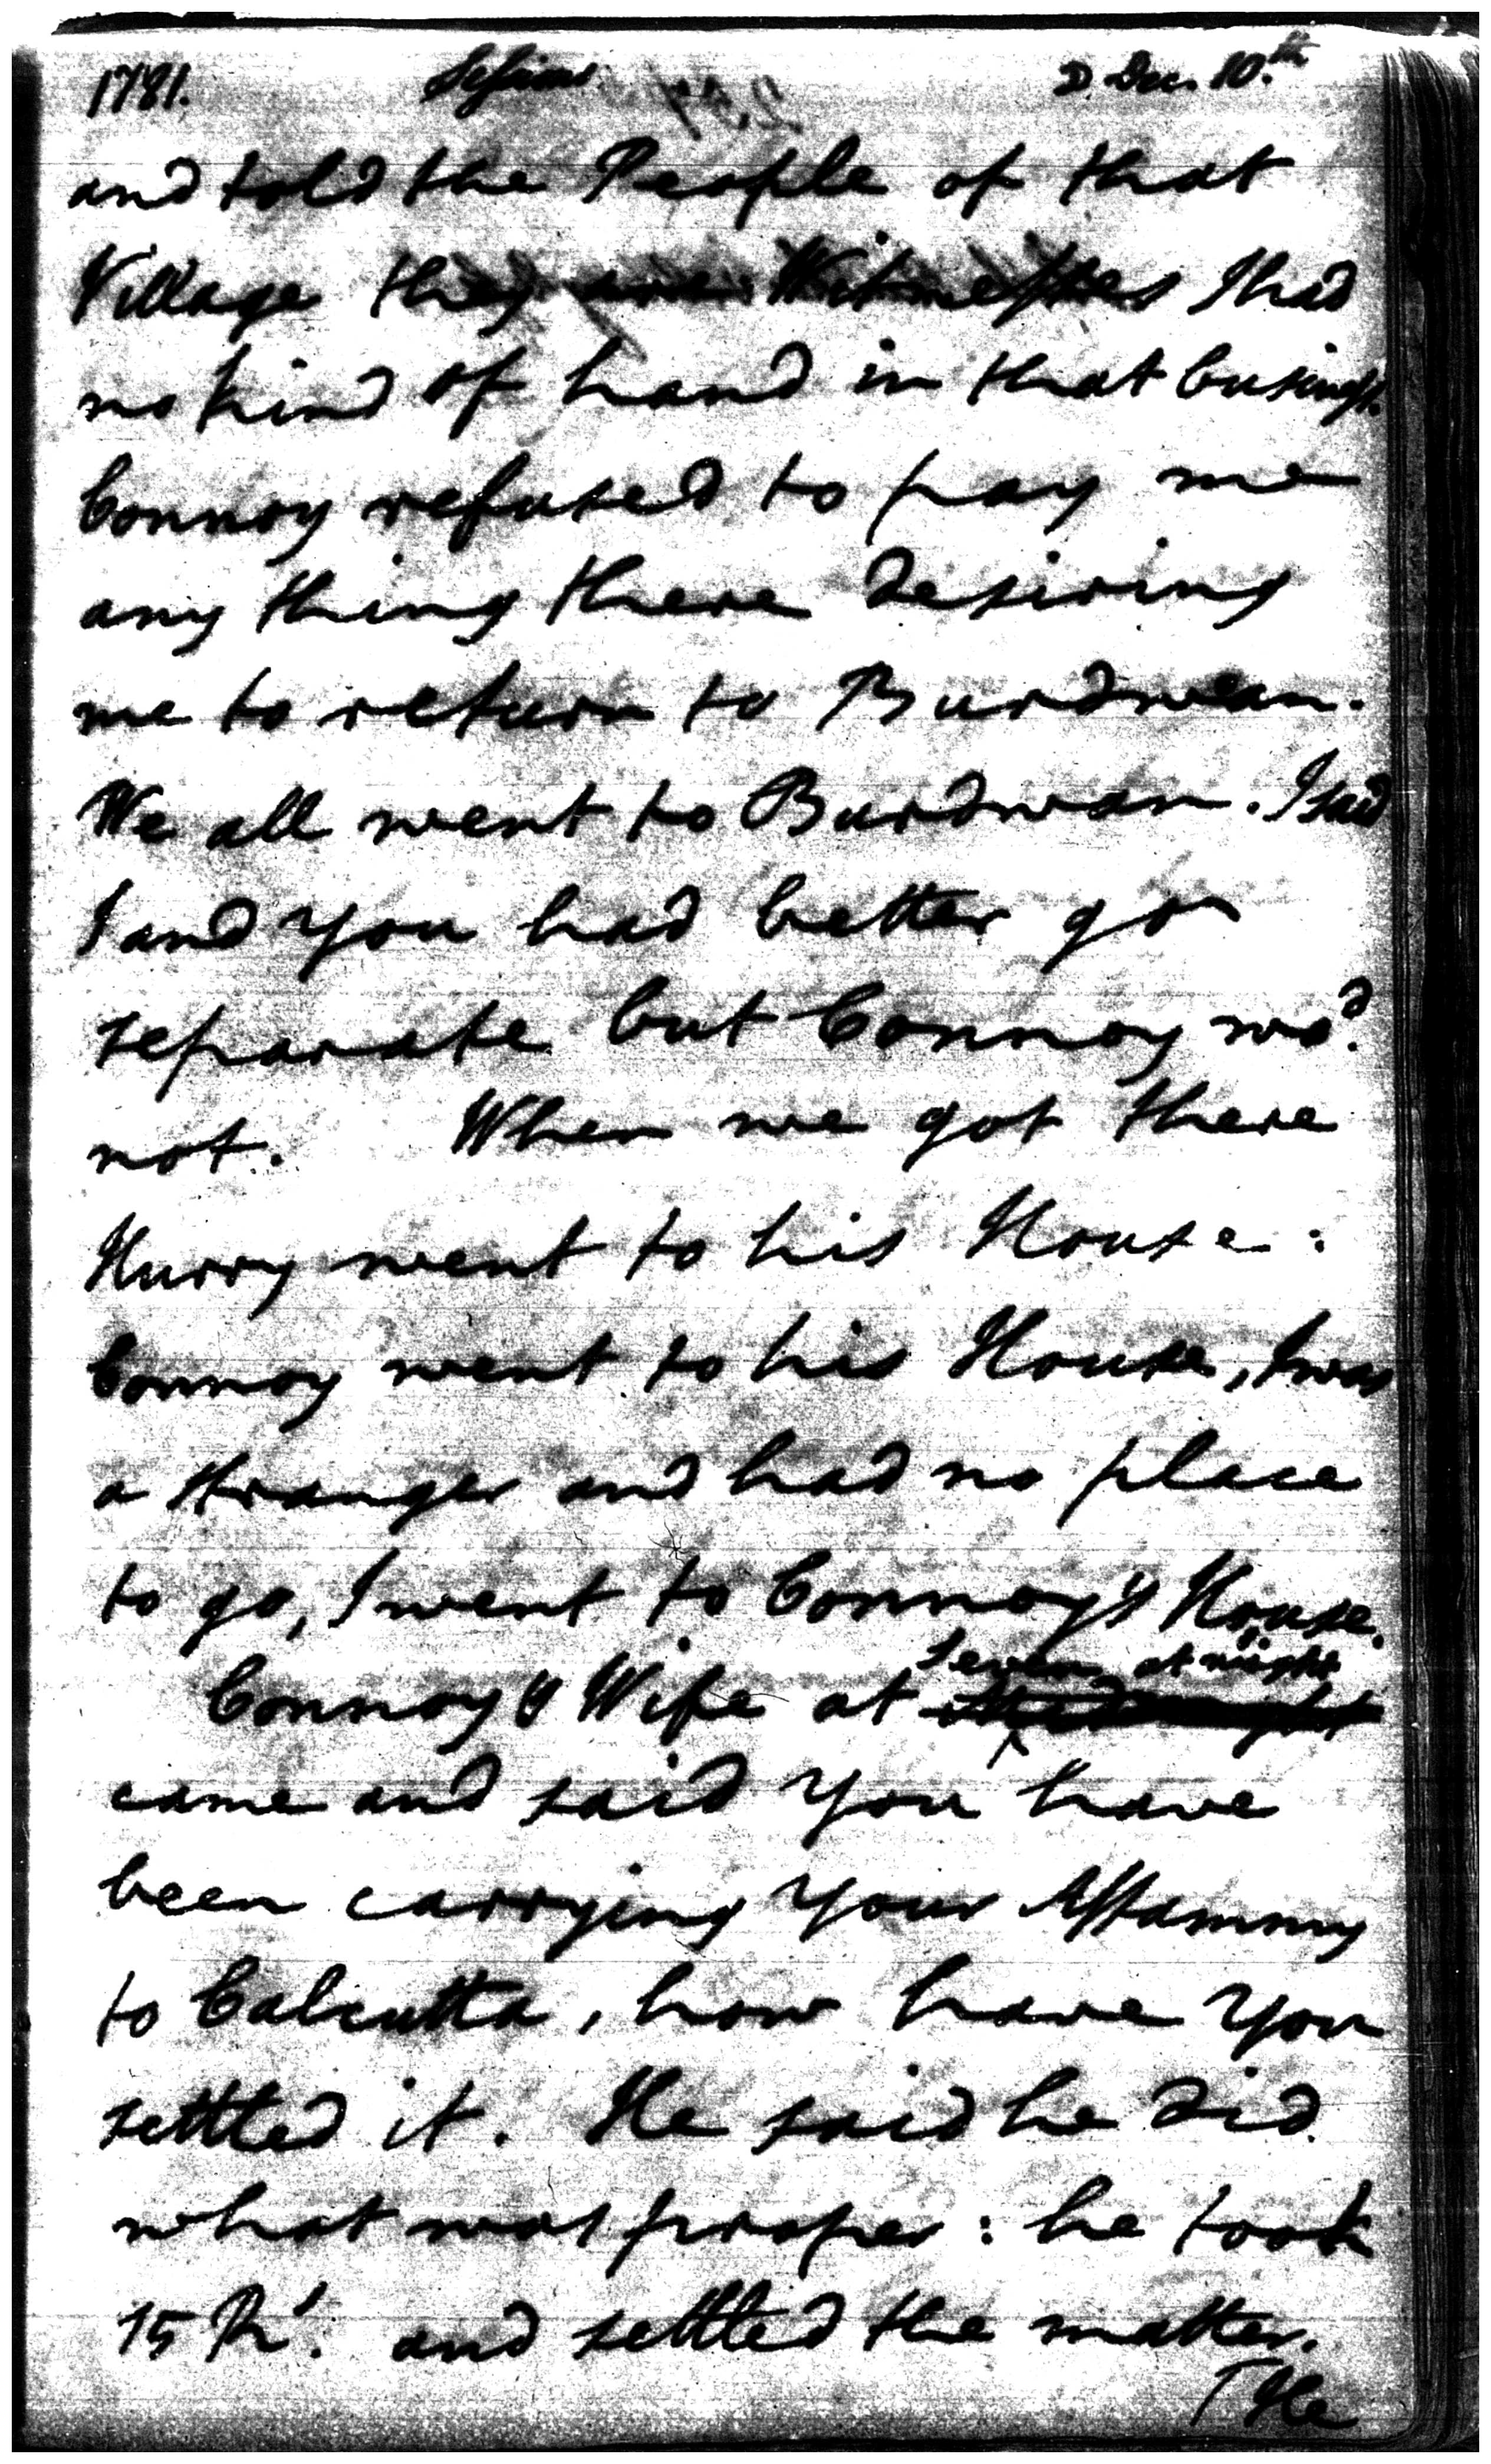 1781. Sessions. D. Dec. 10.th
and told the People of that
Village they are Witnesses I had
no kind of hand in that business.
Connoy refused to pay me
any thing there desiring
me to return to Burdwan.
We all went to Burdwan. I said
I and You had better go
separate but Connoy wo.d
not. When we got there
Hurry went to his House:
Connoy went to his House, I was
a stranger and had no place
to go, I went to Connoy's House.
Seven at night
Connoy's Wife at
came and said You have
been carrying Your Assammy
to Calcutta, how have You
settled it. He said he did
what was proper: he took
15 R.s and settled the matter.
The